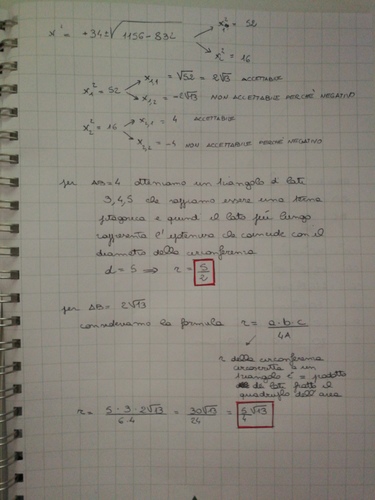 x² = +34±√1156-832 x₁² = 52
x₂² = 16
x₁² = 52 x₁,₁ = √52 = 2√13 ACCETTABILE
x₁,₂ = -2√13 NON ACCETTABILE PERCHÈ NEGATIVO
x₂² = 16 x₂,₁ = 4 ACCETTABILE
x₂,₂ = -4 NON ACCETTABILE PERCHÈ NEGATIVO
per AB=4 otteniamo un triangolo di lati
3,4,5 che sappiamo essere una terna
pitagorica e quindi il lato più lungo
rappresenta l'ipotenusa che coincide con il
diametro della circonferenza
d = 5 ⇒ r = 5/2
per AB = 2√13
consideriamo la formula r = a·b·c / 4A
r della circonferenza
circoscritta a un
triangolo è = prodotto
dei lati fratto il
quadruplo dell'area
r = 5·3·2√13 / 6·4 = 30√13 / 24 = 5/4 √13